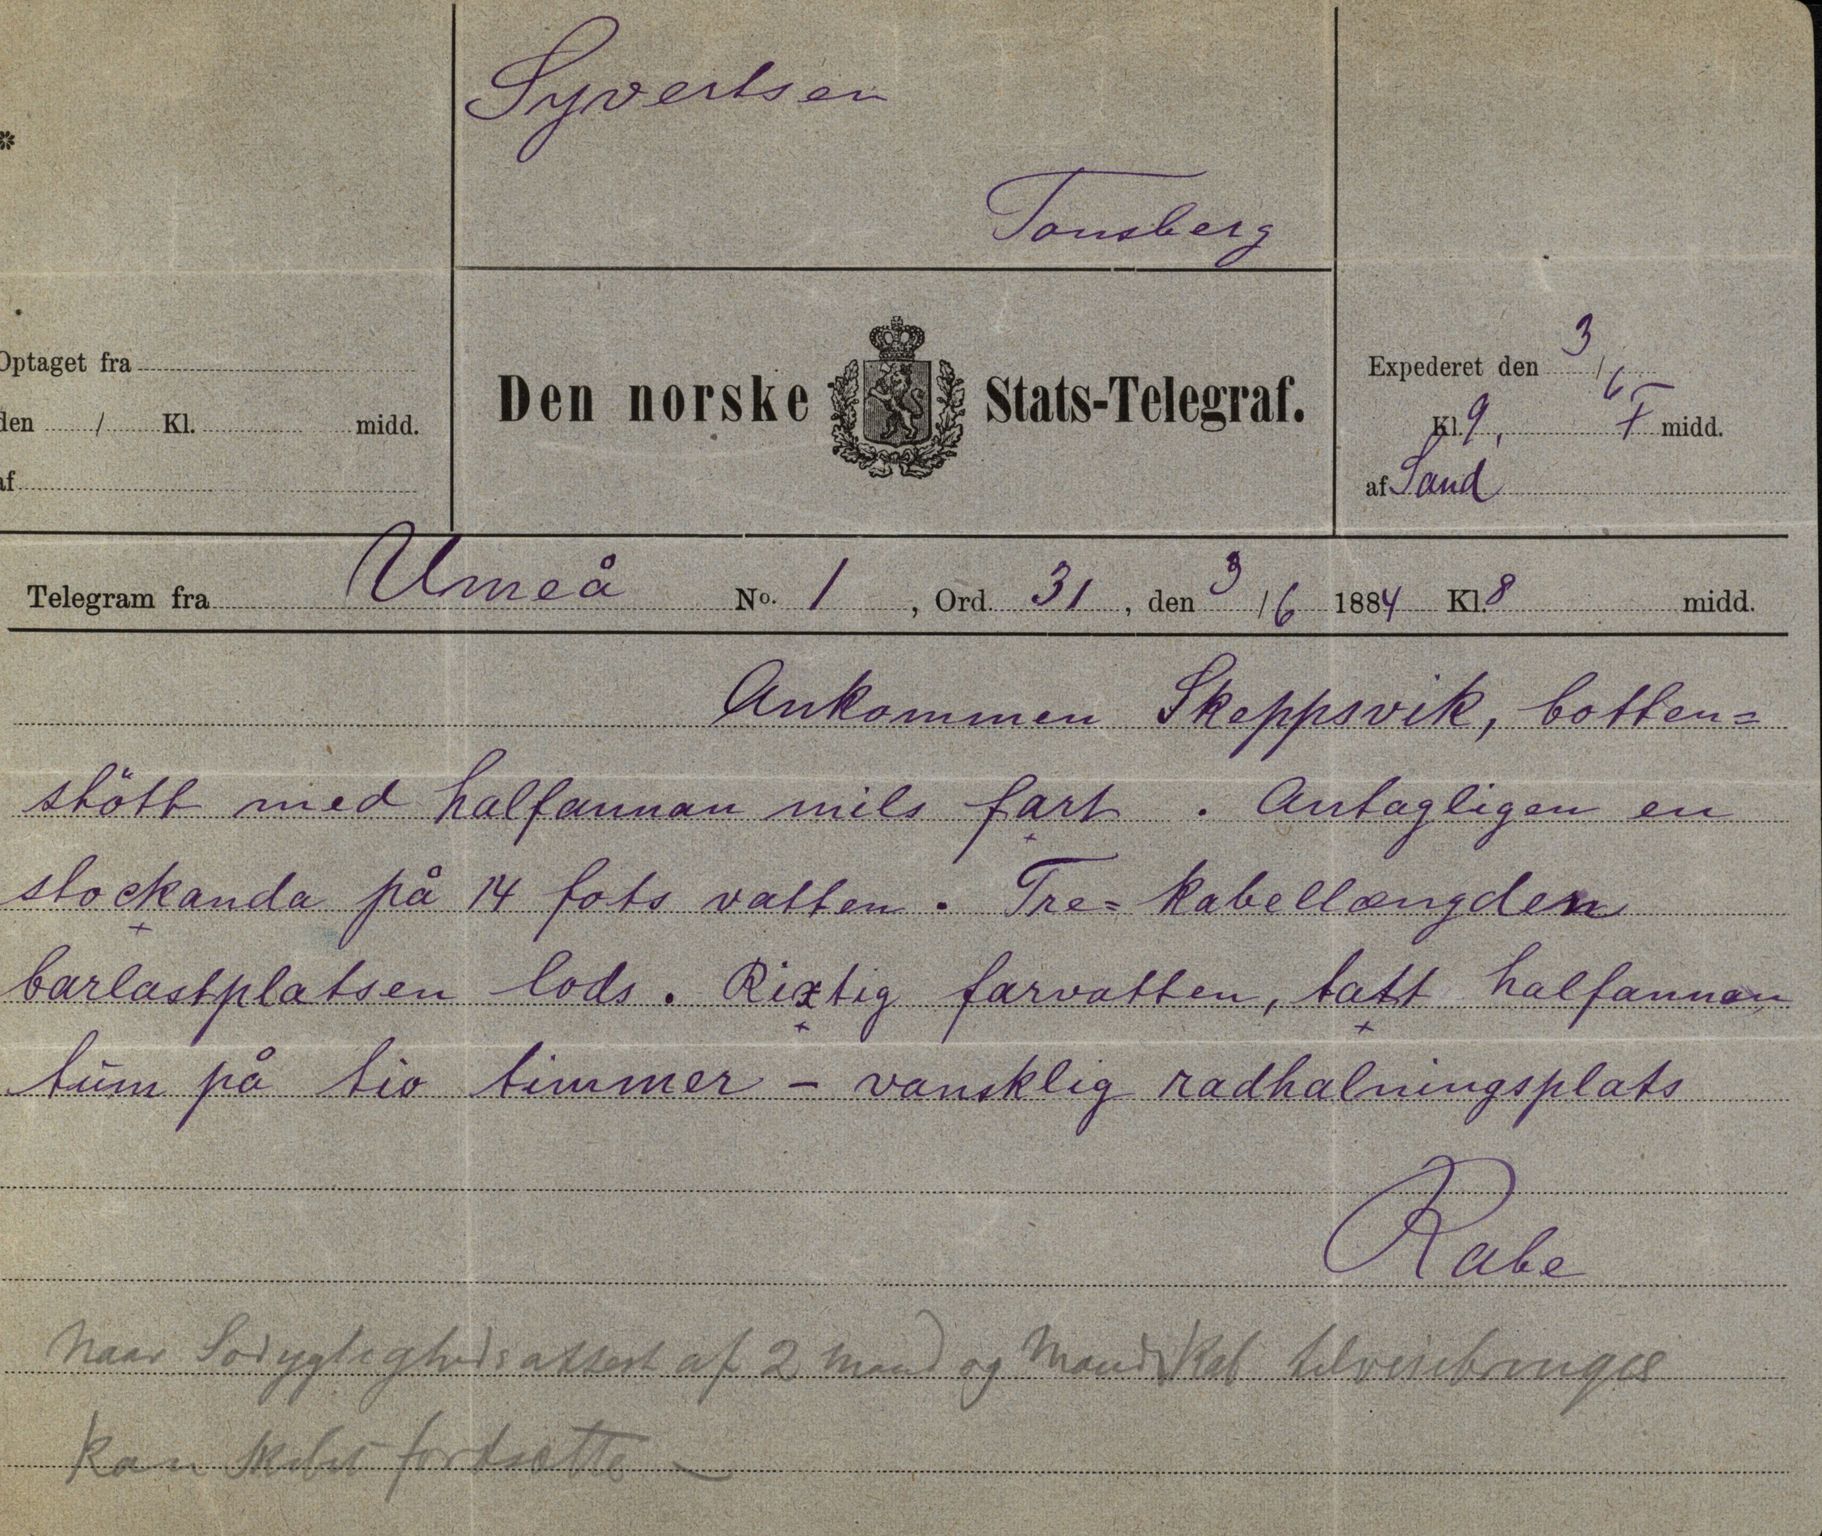 Syvertsen
Tonsberg
*
Optaget fra
den / Kl. midd.
af
Den norske Stats-Telegraf.
Expederet den 3/6
Kl. 9, F midd.
af Sand
Telegram fra Umeå No. 1, Ord. 31, den 3/6 1884 Kl. 8 midd.
Ankommen Skeppsvik, botten=
stött med halfannan mils fart. Antagligen en
stockanda på 14 fots vatten. Tre= kabellængden
barlastplatsen lods. Rixtig farvatten, tatt halfannan
tum på tio timmer - vansklig radhalningsplats
Rabe
Naar Sødygtighedsattest af 2 Mand og Mandskab tilveiebringes
kan skibet fortsætte -